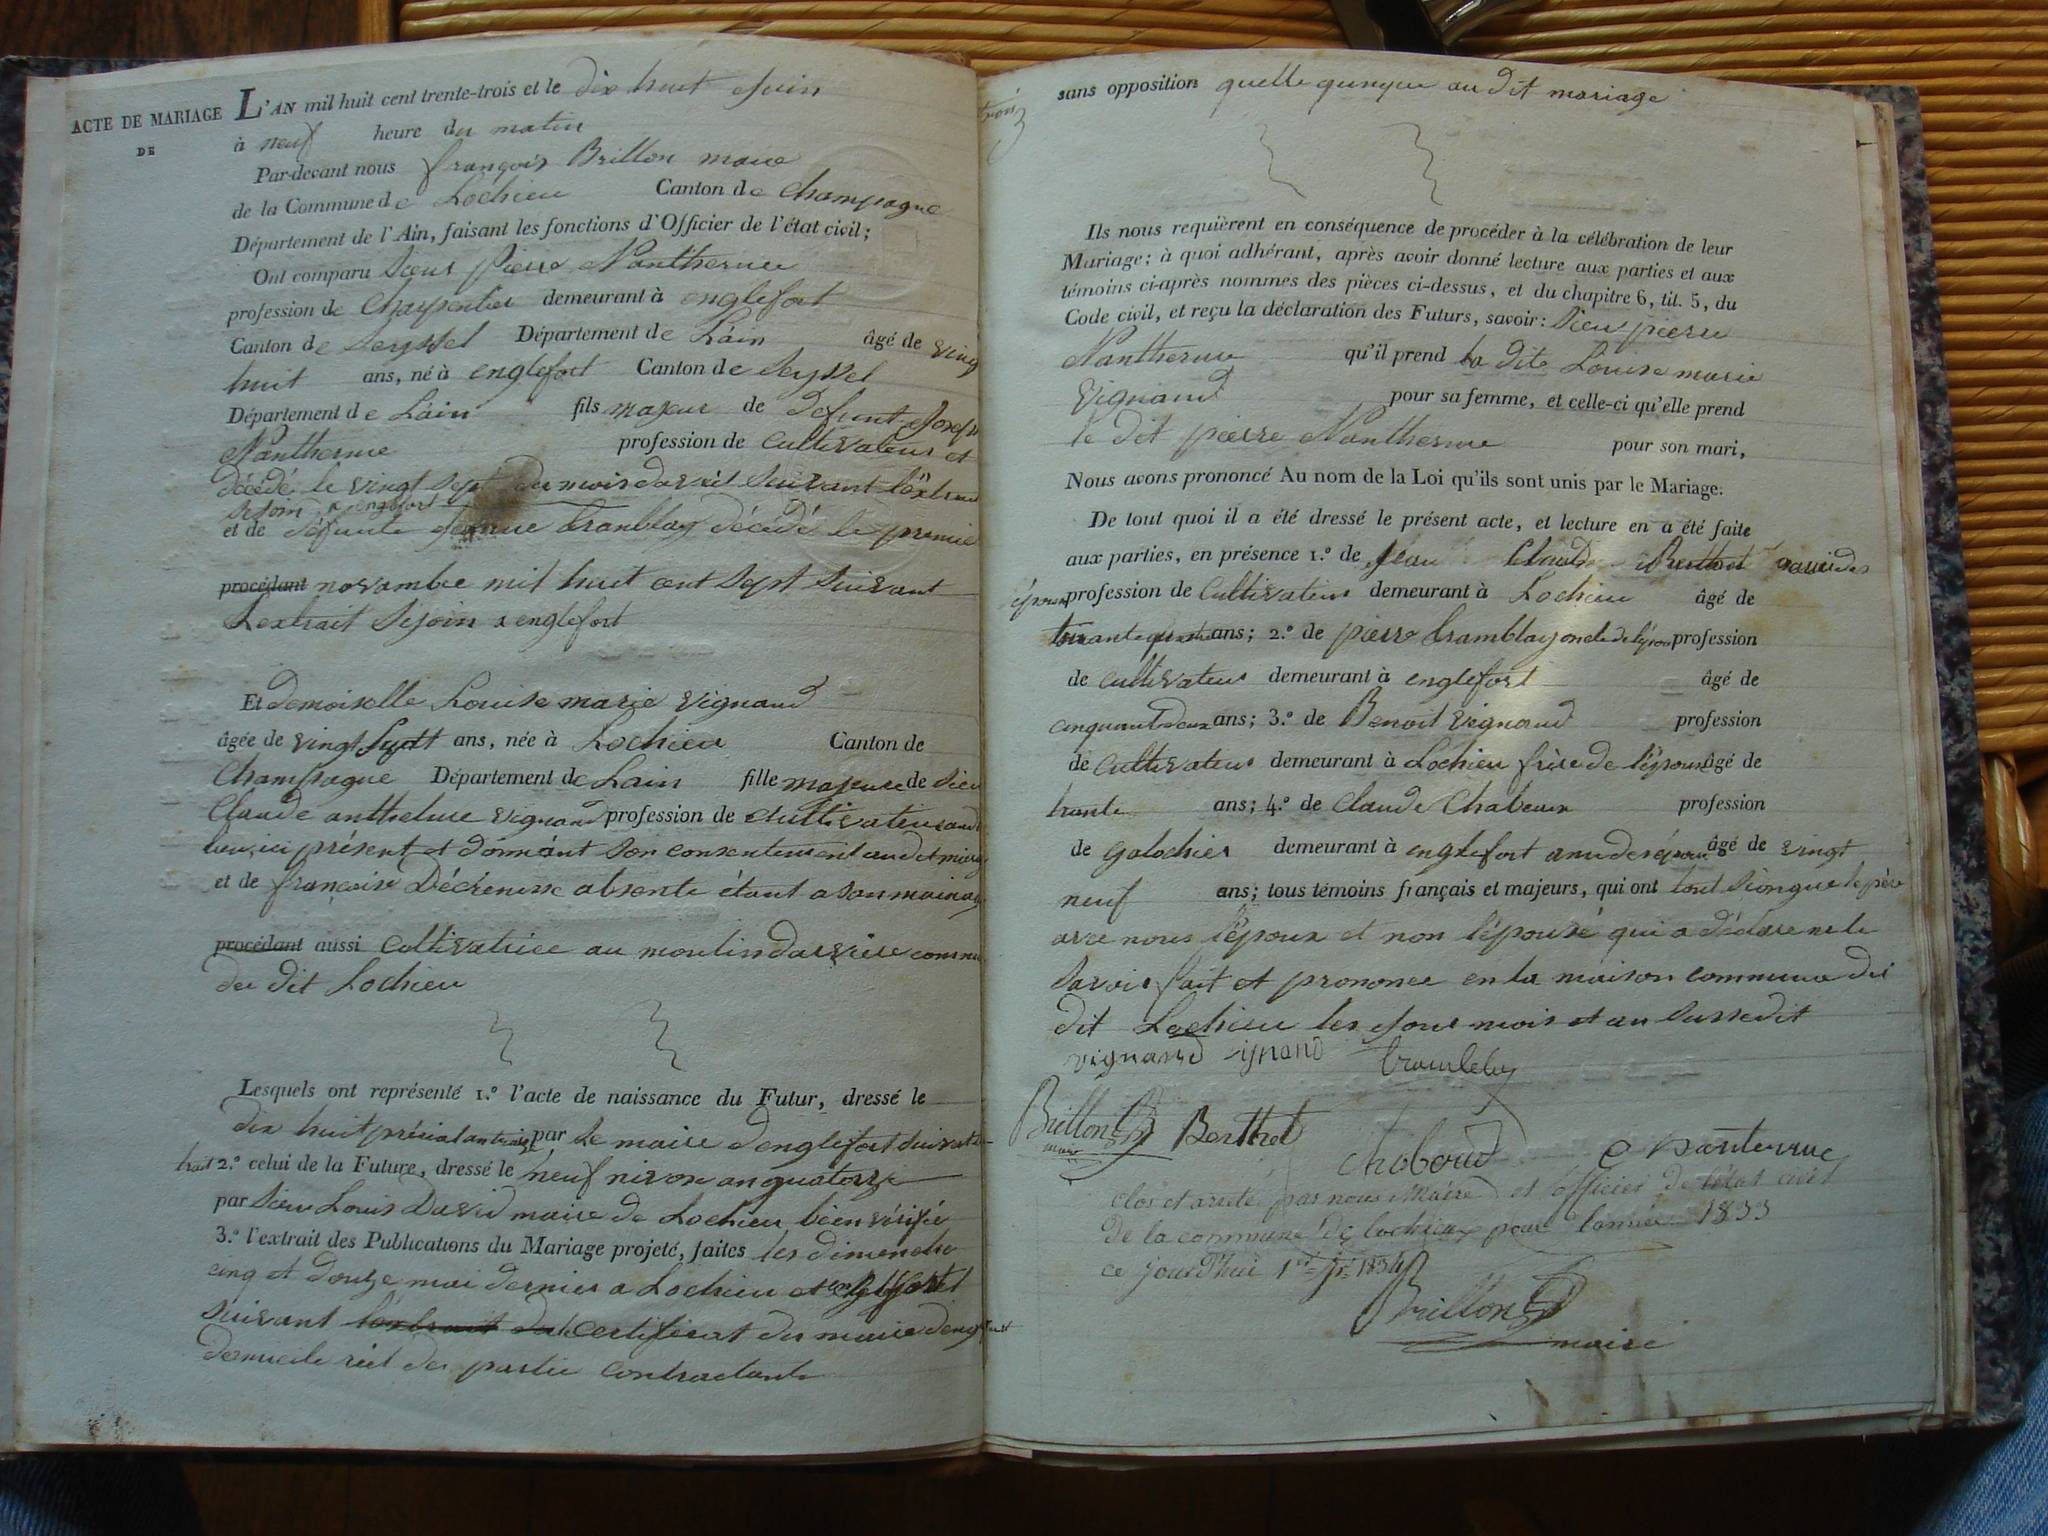 ACTE DE MARIAGE
DE
L'AN mil huit cent trente-trois et le dix huit Juin
à neuf heure du matin
Par-devant nous françois Brillon maire
de la Commune de Lochieu Canton de Champagne
Département de l'Ain, faisant les fonctions d'Officier de l'état civil;
Ont comparu Sieur pierre Nantherme
profession de Charpentier demeurant à englefort
Canton de Seyssel Département de Lain âgé de ving
huit ans, né à englefort Canton de Seyssel
Département de Lain fils majeur de defunt Joseph
Nantherme profession de cultivateur et
décédé le vingt sept du mois davril suivant lextrait
se join a englefort
et de défunte Jeanne tramblay décédé le premie
procédant novambre mil huit cent sept suivant
Lextrait se join a englefort
Et demoiselle Louise marie vignand
âgée de vingt Sept ans, née à Lochieu Canton de
Champagne Département de Lain fille majeure de Sieu
Claude anthelme vignand profession de cultivateur audi
lieu, ici présent et donnant son consentement audit
et de françoise absente étant a son
procédant aussi cultivatrice au moulin
du dit Lochieu
Lesquels ont représenté 1.° l'acte de naissance du Futur, dressé le
dix huit par Le maire denglefort suivant
trait 2.° celui de la Future, dressé le neuf nivose an quatorze
par Sieur Louis David maire de Lochieu bien vérifié
3.° l'extrait des Publications du Mariage projeté, faites les dimenche
cinq et douze mai dernier a Lochieu et englefort
suivant l'extrait du certificat du maire
domicile réel des partie contractante
sans opposition quelle qunque au dit mariage
Ils nous requièrent en conséquence de procéder à la célébration de leur
Mariage; à quoi adhérant, après avoir donné lecture aux parties et aux
témoins ci-après nommés des pièces ci-dessus, et du chapitre 6, tit. 5, du
Code civil, et reçu la déclaration des Futurs, savoir: Sieu pierre
Nantherme qu'il prend la dite Louise marie
vignand pour sa femme, et celle-ci qu'elle prend
le dit pierre Nantherme pour son mari,
Nous avons prononcé Au nom de la Loi qu'ils sont unis par le Mariage.
De tout quoi il a été dressé le présent acte, et lecture en a été faite
aux parties, en présence 1.° de Jean Claude Berthet
profession de Cultivateur demeurant à Lochieu âgé de
ans; 2.° de pierre tramblay oncle de profession
de cultivateur demeurant à englefort âgé de
cinquante deux ans; 3.° de Benoit vignand profession
de cultivateur demeurant à Lochieu frère de l'épouse âgé de
trante ans; 4.° de Claude Chaboux profession
de Galochier demeurant à englefort ami de âgé de vingt
neuf ans; tous témoins français et majeurs, qui ont tout le père
avec nous l'époux et non l'épouse qui a déclare ne le
savoir fait et prononcé en la maison commune du
dit Lochieu les Jour mois et an susse dit
vignand vignand
Brillon Berthet
maire
clos et areté par nous Maire et officier de l'état civil
de la commune de Lochieu pour l'année 1833
ce jourd'hui 1er 1834
Brillon
maire